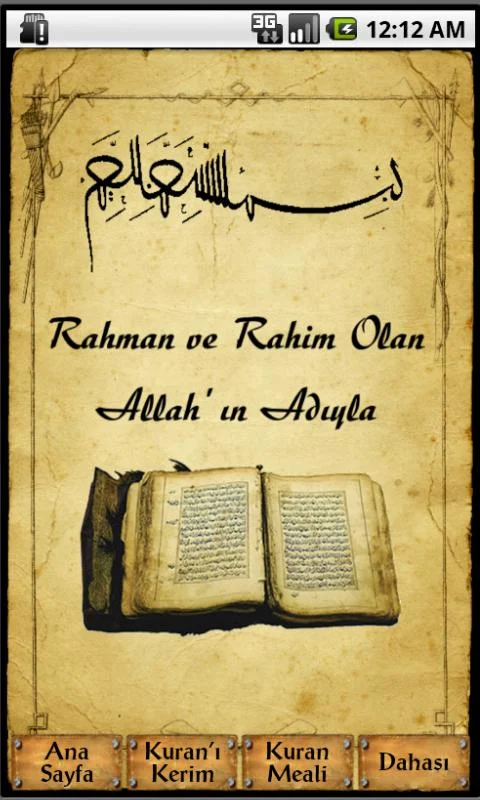 3G
12:12 AM
بسم الله الرحمن الرحيم
Rahman ve Rahim Olan
Allah'ın Adıyla
Ana
Sayfa
Kuran'ı
Kerim
Kuran
Meali
Dahası